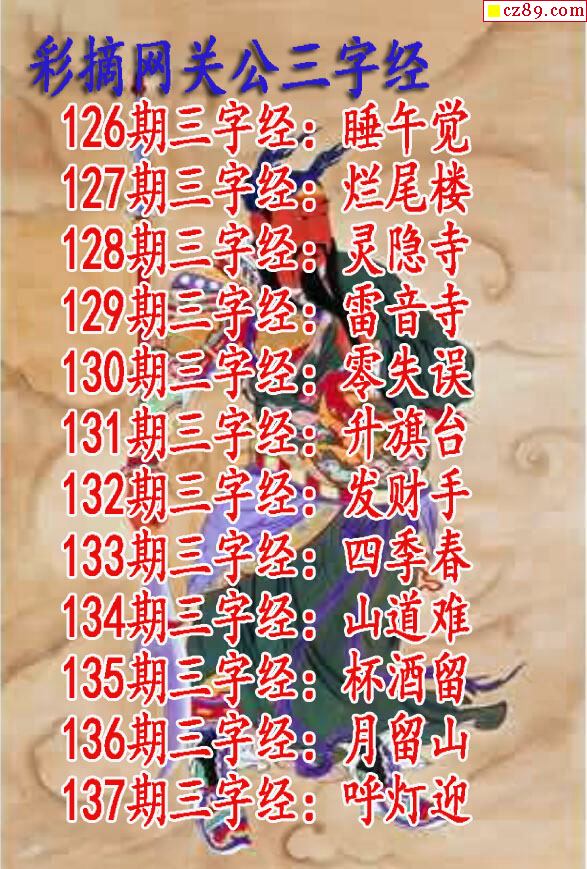 cz89.com
彩摘网关公三字经
126期三字经：睡午觉
127期三字经：烂尾楼
128期三字经：灵隐寺
129期三字经：雷音寺
130期三字经：零失误
131期三字经：升旗台
132期三字经：发财手
133期三字经：四季春
134期三字经：山道难
135期三字经：杯酒留
136期三字经：月留山
137期三字经：呼灯迎